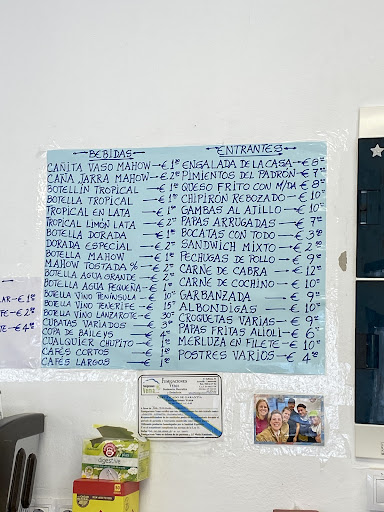 BEBIDAS
CAÑITA VASO MAHOW → € 1
CAÑA JARRA MAHOW → € 2
BOTELLÍN TROPICAL → € 1
BOTELLA TROPICAL → € 1
TROPICAL EN LATA → € 1
TROPICAL LIMÓN LATA → € 2
BOTELLA DORADA → € 1
DORADA ESPECIAL → € 2
BOTELLA MAHOW → € 1
MAHOW TOSTADA % → € 2
BOTELLA AGUA GRANDE → € 2
BOTELLA AGUA PEQUEÑA → € 1
BOTELLA VINO PENÍNSULA → € 10
BOTELLA VINO TENERIFE → € 15
BOTELLA VINO LANZAROTE → € 30
CUBATAS VARIADOS → € 3
COPA DE BAILEYS → € 4
CUALQUIER CHUPITO → € 1
CAFÉS CORTOS → € 1
CAFÉS LARGOS → € 1
ENTRANTES
ENSALADA DE LA CASA → € 8
PIMIENTOS DEL PADRÓN → € 7
QUESO FRITO CON M/DA → € 8
CHIPIRÓN REBOZADO → € 10
GAMBAS AL AJILLO → € 10
PAPAS ARRUGADAS → € 7
BOCATAS CON TODO → € 3
SANDWICH MIXTO → € 2
PECHUGAS DE POLLO → € 9
CARNE DE CABRA → € 12
CARNE DE COCHINO → € 10
GARBANZADA → € 9
ALBÓNDIGAS → € 10
CROQUETAS VARIAS → € 9
PAPAS FRITAS ALIOLI → € 6
MERLUZA EN FILETE → € 10
POSTRES VARIOS → € 4
digestive